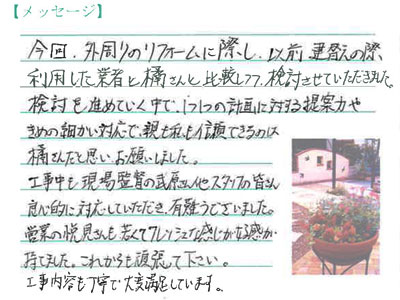 【メッセージ】
今回、外周りのリフォームに際し、以前建替えの際、
利用した業者と橘さんと比較しつつ、検討させていただきました。
検討を進めていく中で、1つ1つの計画に対する提案力や
きめの細かい対応で、親も私も信頼できるのは
橘さんだと思い、お願いしました。
工事中も現場監督の武原さん他スタッフの皆さん
良心的に対応していただき、有難うございました。
営業の悦見さんも若くてフレッシュな感じが好感が
持てました。これからも頑張って下さい。
工事内容も丁寧で大変満足しています。